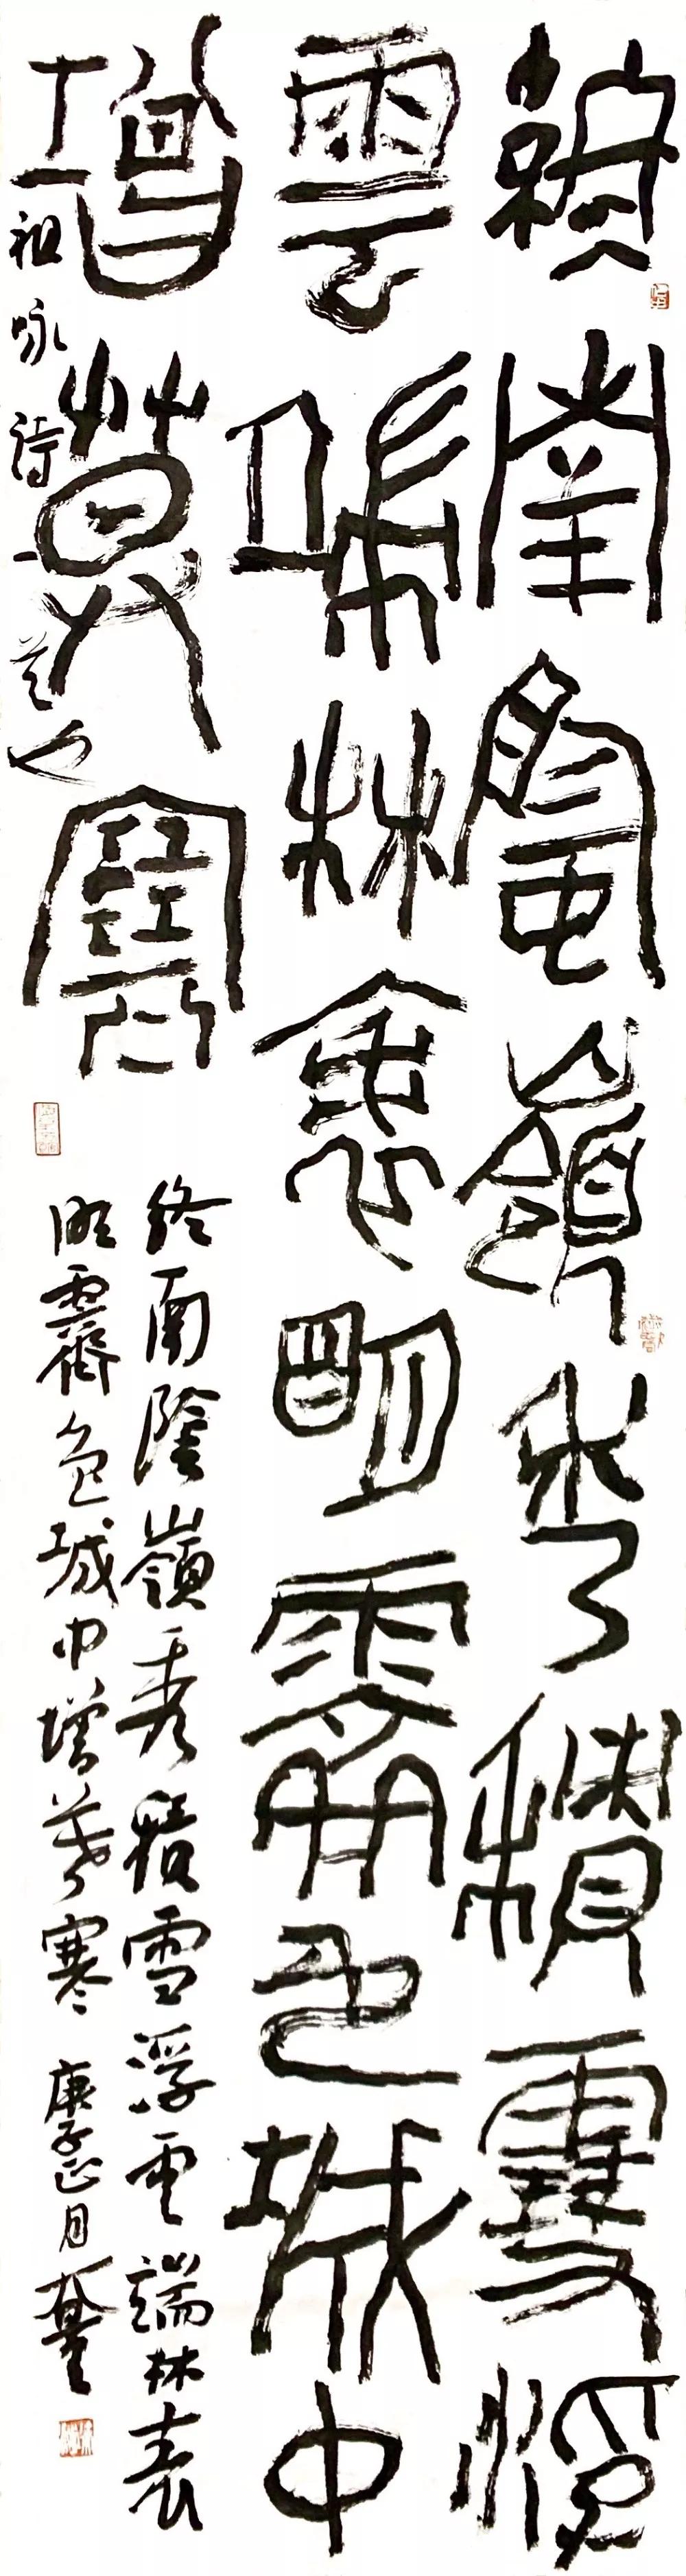 終南陰嶺秀積雪浮
雲端林表明霽色城中
增莫寒
終南陰嶺秀積雪浮雲端林表
明霽色城中增暮寒 庚子正月
祖咏詩